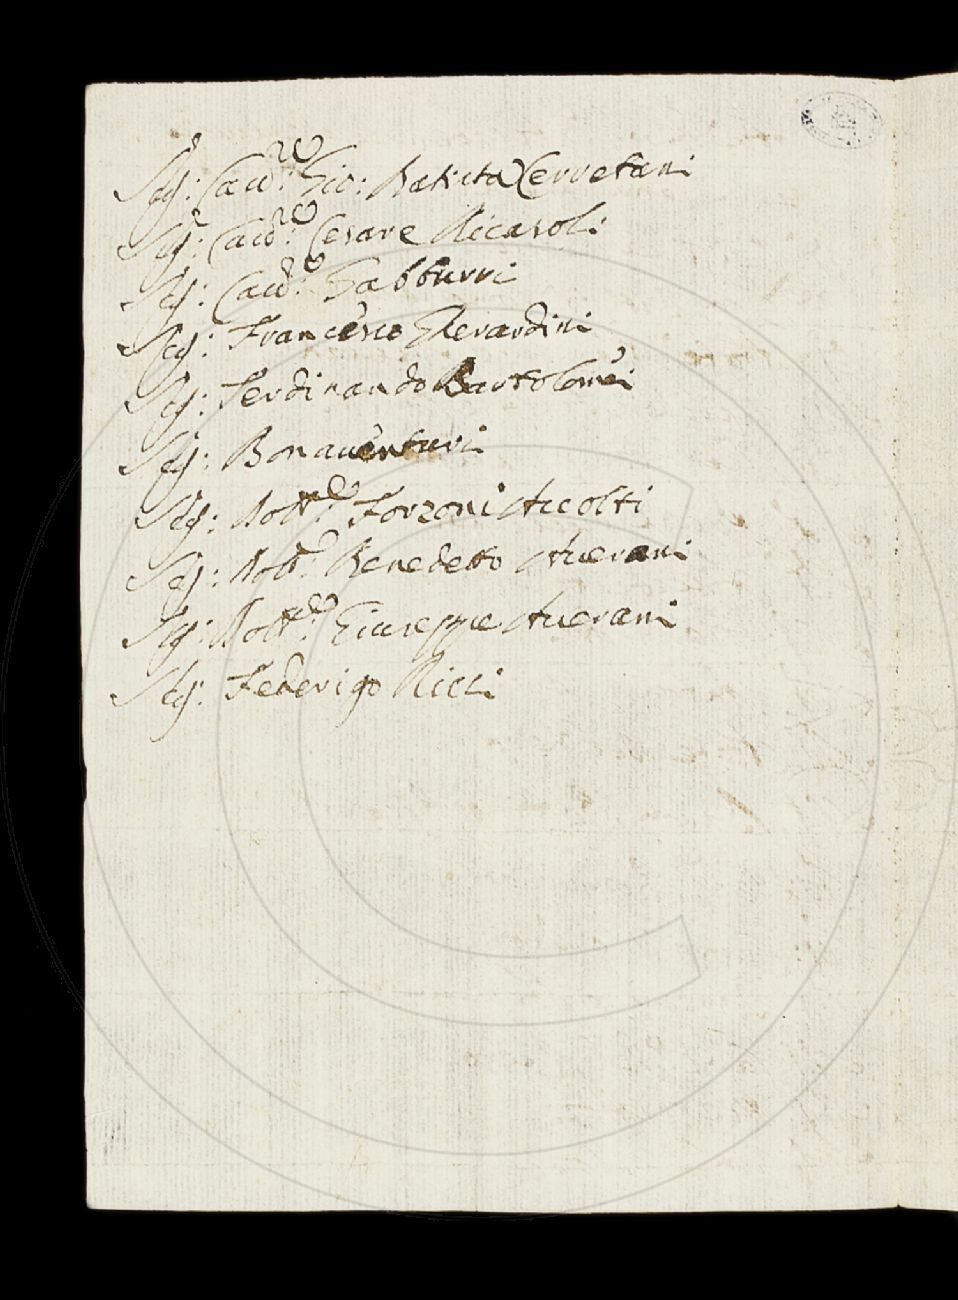 Sig: Cav.re Gio: Batista Cerretani
Sig: Cav.re Cesare Ricasoli
Sig: Cav.re Gabburri
Sig: Francesco Gherardini
Sig: Ferdinando Bartolomei
Sig: Bonaventuri
Sig: Dott.re Forzoni Accolti
Sig: Dott.re Benedetto Averani
Sig: Dott.re Giuseppe Averani
Sig: Federigo Ricci